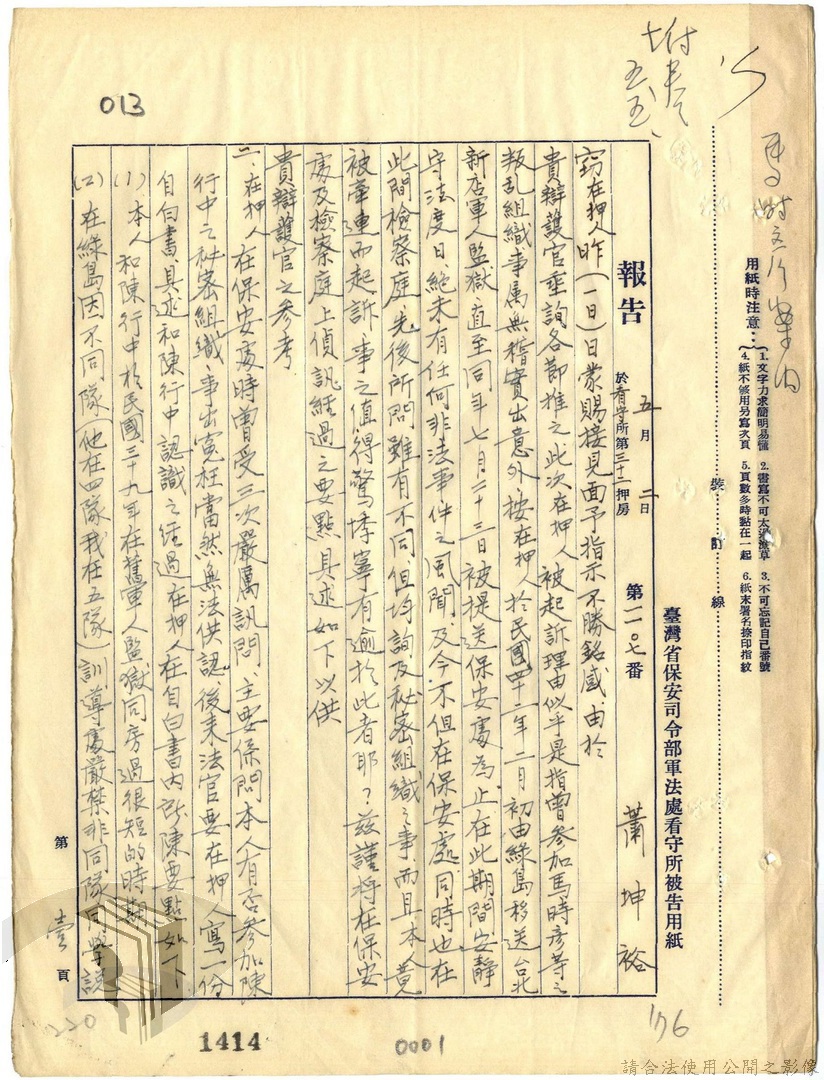 013
附卷
五、五、
用紙時注意：
1. 文字力求簡明易懂
2. 書寫不可太潦草
3. 不可忘記自己番號
4. 紙不够用另寫次頁
5. 頁數多時點在一起
6. 紙末署名捺印指紋
裝訂線
臺灣省保安司令部軍法處看守所被告用紙
報告
五月二日
於看守所第三十二押房
第一一〇七番
蕭坤裕
窃在押人昨(一日)日蒙賜接見面予指示不勝銘感、由於
貴辯護官垂詢各節推之此次在押人被起訴理由似乎是指曾參加馬時彥等之
叛乱組織事属無稽實出意外按在押人於民國四十二年二月初由綠島移送台北
新店軍人監獄、直至同年七月二十三日被提送保安處為止在此期間安靜
守法度日、絕未有任何非法事件之風聞、及今、不但在保安處、同時也在
此間檢察庭先後所問雖有不同、但均詢及秘密組織之事、而且本人竟
被牽連而起訴、事之值得驚悸寧有逾於此者耶？茲謹將在保安
處及檢察庭上偵訊經過之要點具述如下以供
貴辯護官之參考
一、在押人在保安處時曾受三次嚴厲訊問、主要係問本人有否參加陳
行中之秘密組織、事出寃枉當然無法供認、後來法官要在押人寫一份
自白書、具述和陳行中認識之經過、在押人在自白書內所陳要點如下
(1) 本人和陳行中於民國三十九年在舊軍人監獄同房過很短的時期
(2) 在綠島因不同隊(他在四隊我在五隊)訓導處嚴禁非同隊同學説
第壹頁
220
1414
0001
176
請合法使用公開之影像